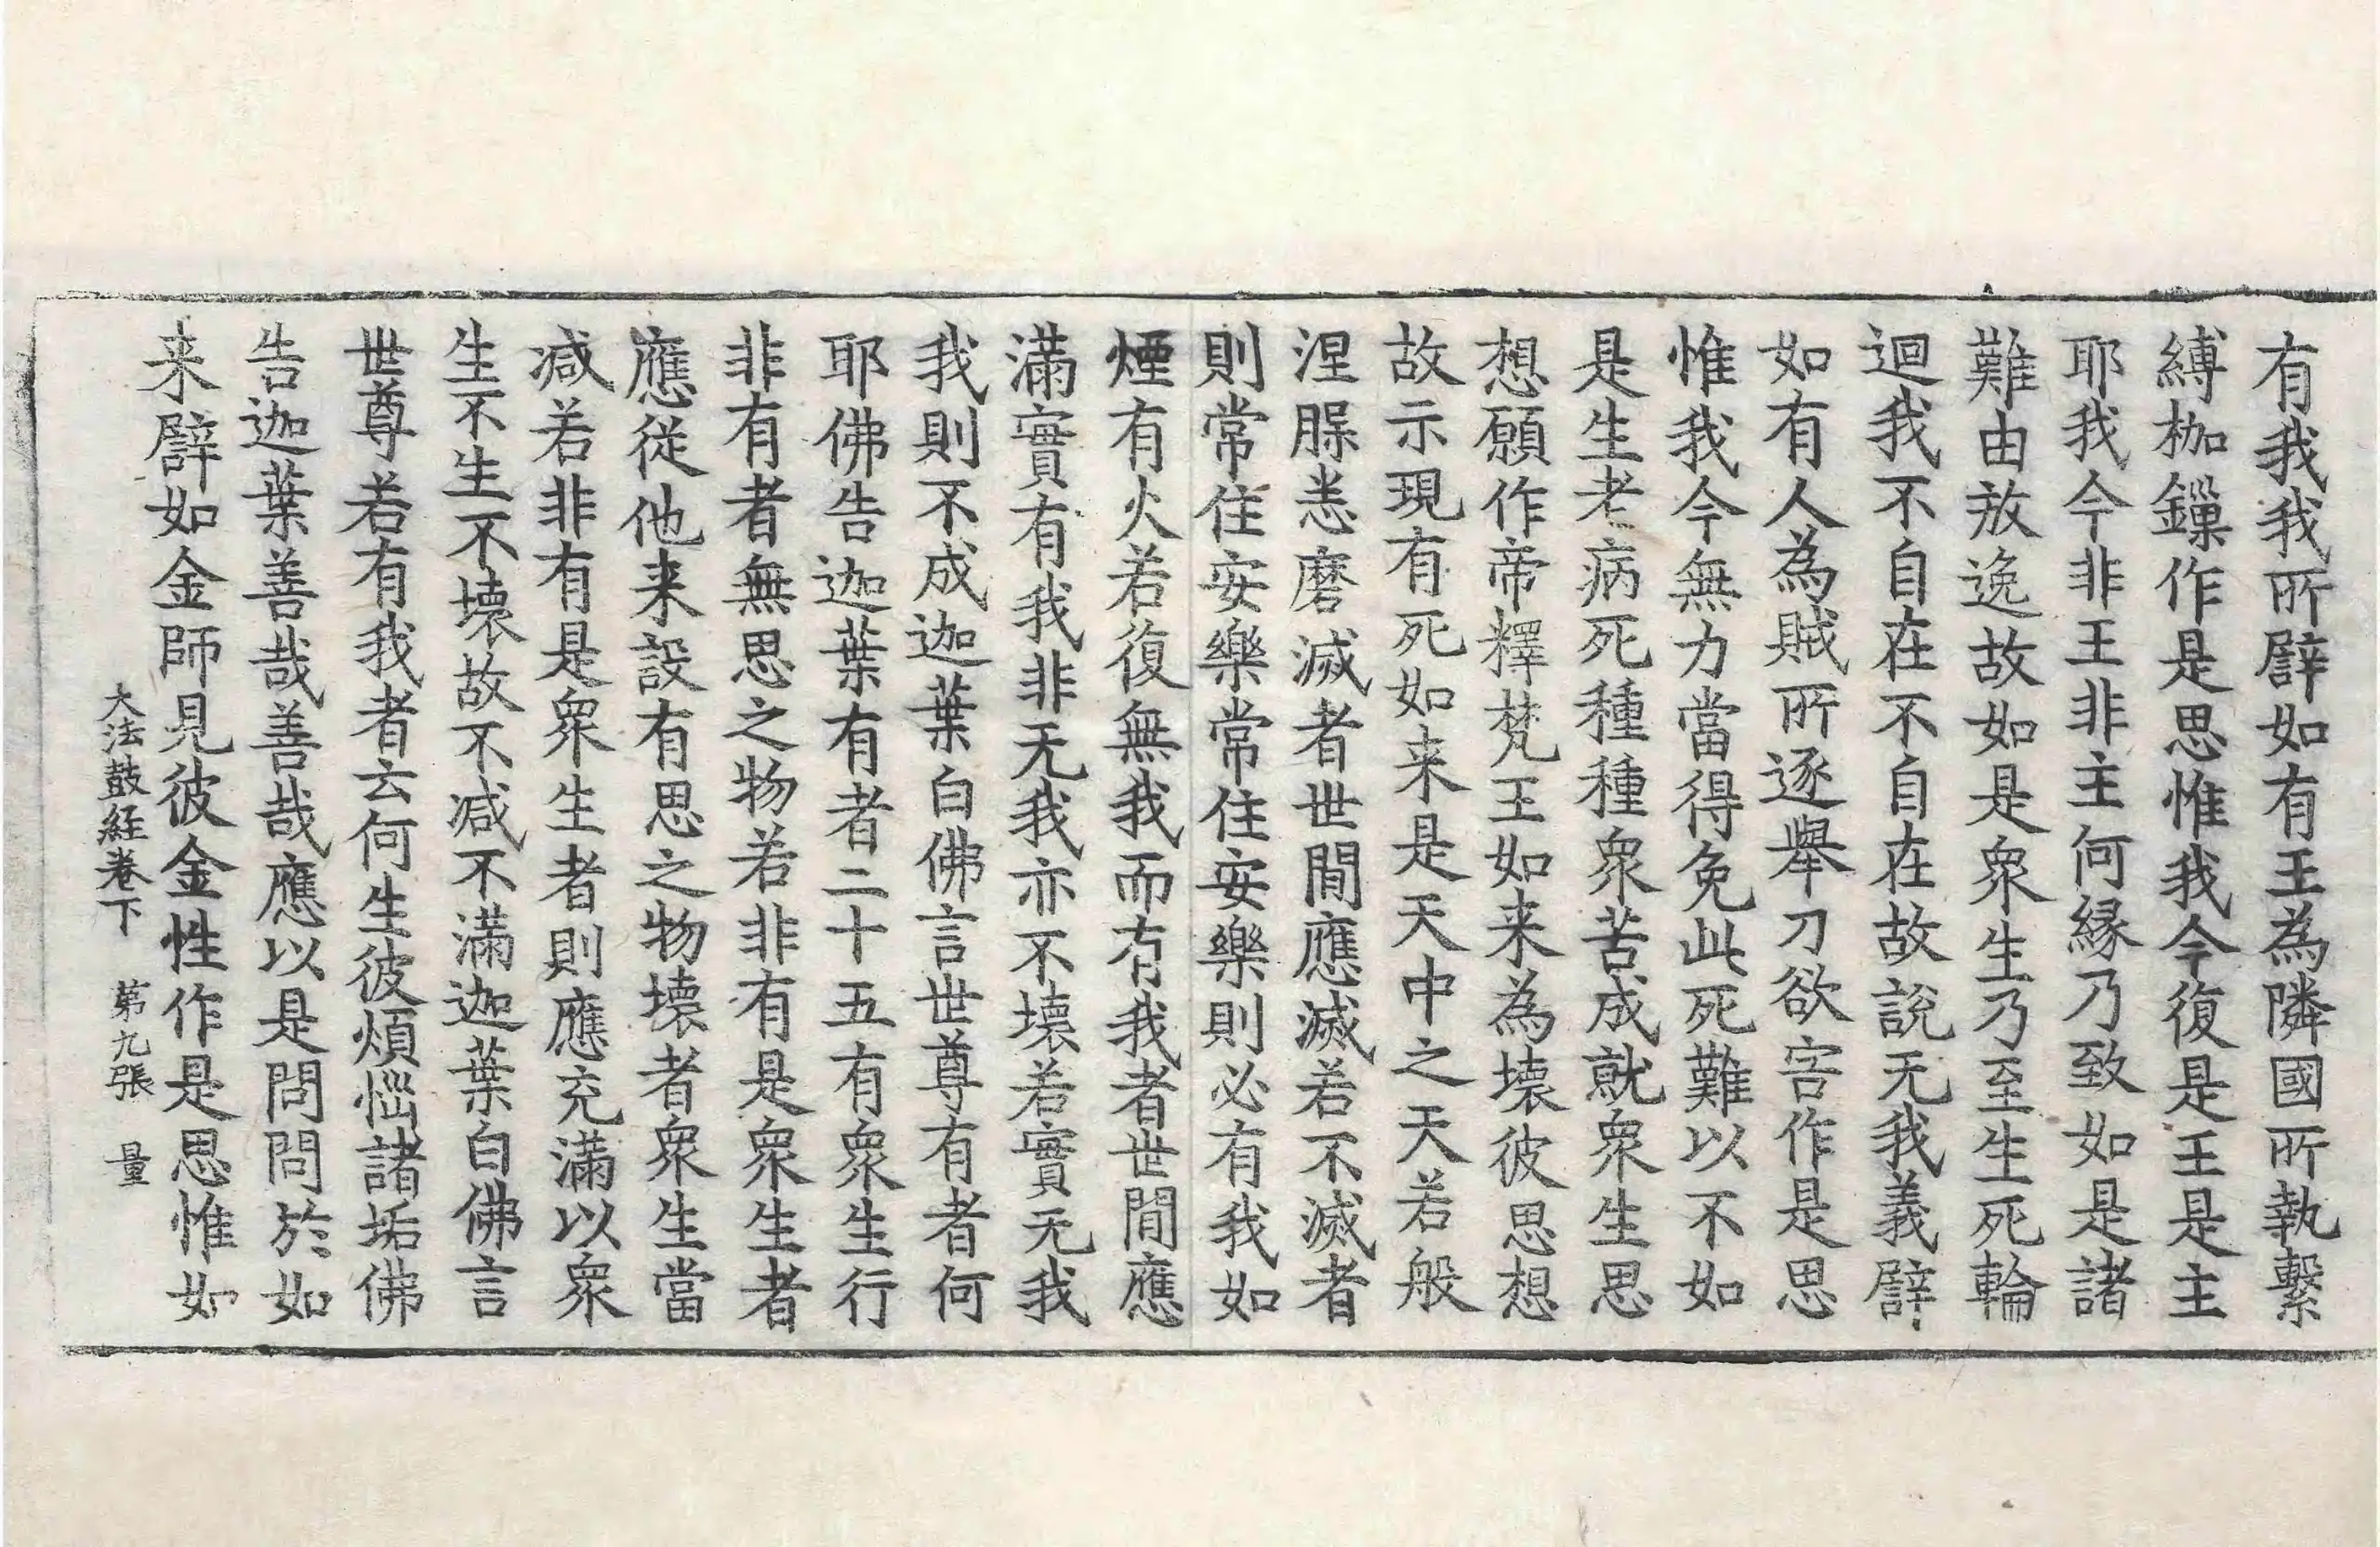 有我我所譬如有王為隣國所執繫
縛枷鏁作是思惟我今復是王是主
耶我今非王非主何緣乃致如是諸
難由放逸故如是眾生乃至生死輪
迴我不自在不自在故說无我義譬
如有人為賊所逐舉刀欲害作是思
惟我今無力當得免此死難以不如
是生老病死種種眾苦成就眾生思
想願作帝釋梵王如来為壞彼思想
故示現有死如来是天中之天若般
涅槃悉磨滅者世間應滅若不滅者
則常住安樂常住安樂則必有我如
煙有火若復無我而有我者世間應
滿實有我非无我亦不壞若實无我
我則不成迦葉白佛言世尊有者何
耶佛告迦葉有者二十五有眾生行
非有者無思之物若非有是眾生者
應從他来設有思之物壞者眾生當
减若非有是眾生者則應充滿以眾
生不生不壞故不减不滿迦葉白佛言
世尊若有我者云何生彼煩惱諸垢佛
告迦葉善哉善哉應以是問問於如
来譬如金師見彼金性作是思惟如
大法鼓経卷下 第九張 量